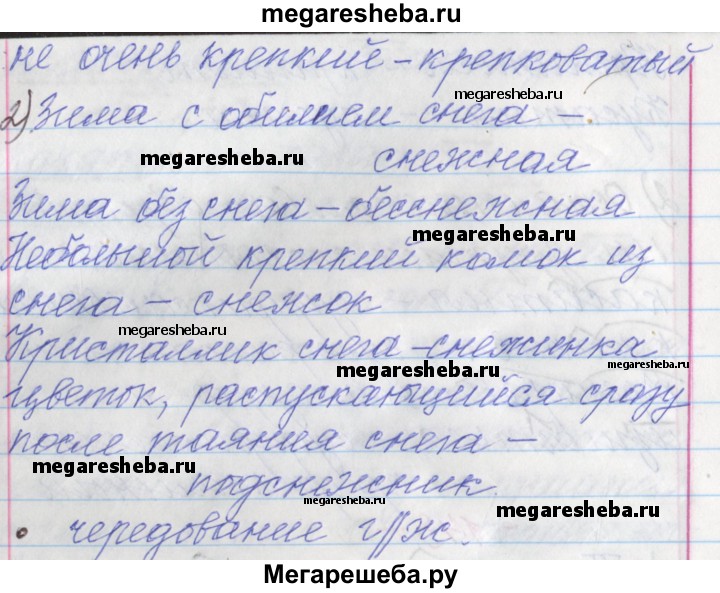 megaresheba.ru
не очень крепкий – крепковатый
megaresheba.ru
2) Зима с обилием снега –
megaresheba.ru
снежная
Зима без снега – бесснежная
megaresheba.ru
Небольшой крепкий комок из
снега – снежок
megaresheba.ru
Кристаллик снега – снежинка
megaresheba.ru
megaresheba.ru
цветок, распускающийся сразу
после таяния снега –
megaresheba.ru
подснежник
megaresheba.ru
megaresheba.ru
• чередование г//ж.
Мегарешеба.ру